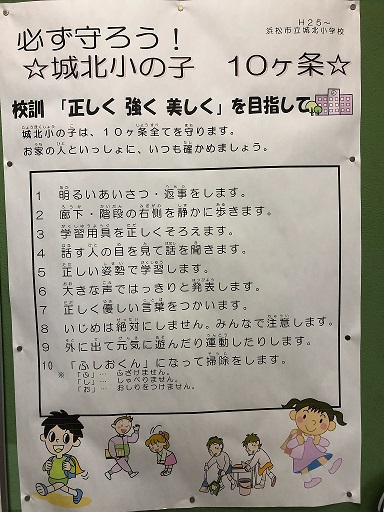 H25～
浜松市立城北小学校
必ず守ろう！
☆城北小の子 10ヶ条☆
校訓 「正しく 強く 美しく」を目指して
城北小の子は、10ヶ条全てを守ります。
お家の人といっしょに、いつも確かめましょう。
1 明るいあいさつ・返事をします。
2 廊下・階段の右側を静かに歩きます。
3 学習用具を正しくそろえます。
4 話す人の目を見て話を聞きます。
5 正しい姿勢で学習します。
6 大きな声ではっきりと発表します。
7 正しく優しい言葉をつかいます。
8 いじめは絶対にしません。みんなで注意します。
9 外に出て元気に遊んだり運動したりします。
10 「ふしおくん」になって掃除をします。
※ 「ふ」… ふざけません。
「し」… しゃべりません。
「お」… おしりをつけません。